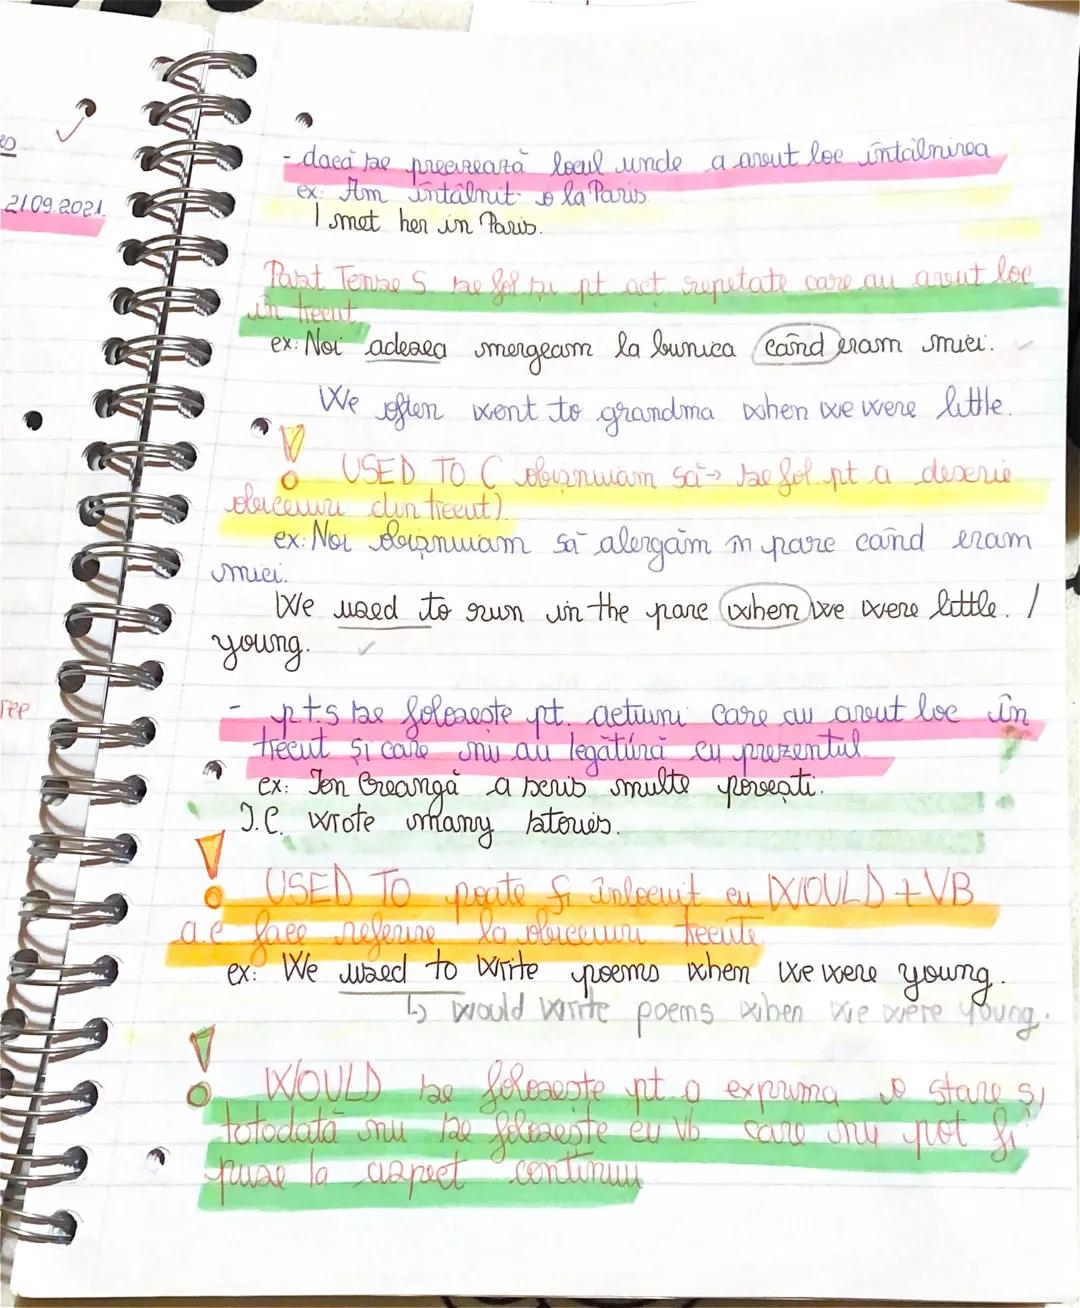 21.09.2021.
- dacă se precizează locul unde a avut loc întâlnirea
ex: Am întâlnit-o la Paris
I met her in Paris.
Past Tense S. se fol și pt act repetate care au avut loc
în trecut
ex: Noi adesea mergeam la bunica când eram mici.
We often went to grandma when we were little.
! USED TO ( obișnuiam să → se fol. pt a descrie
obiceiuri din trecut)
ex: Noi obișnuiam să alergăm în parc când eram
mici.
We used to run in the parc when we were little. /
young.
- pts se folosește pt. acțiuni care au avut loc în
trecut și care nu au legătură cu prezentul
ex: Ion Creangă a scris multe povești.
I.C. wrote many stories.
! USED TO poate fi înlocuit cu WOULD + VB
a.c face referire la obiceiuri trecute
ex: We used to write poems when we were young.
↳ would write poems when we were young.
! WOULD se folosește pt a exprima o stare și
totodată nu se folosește cu vb care nu pot fi
puse la aspect continuu